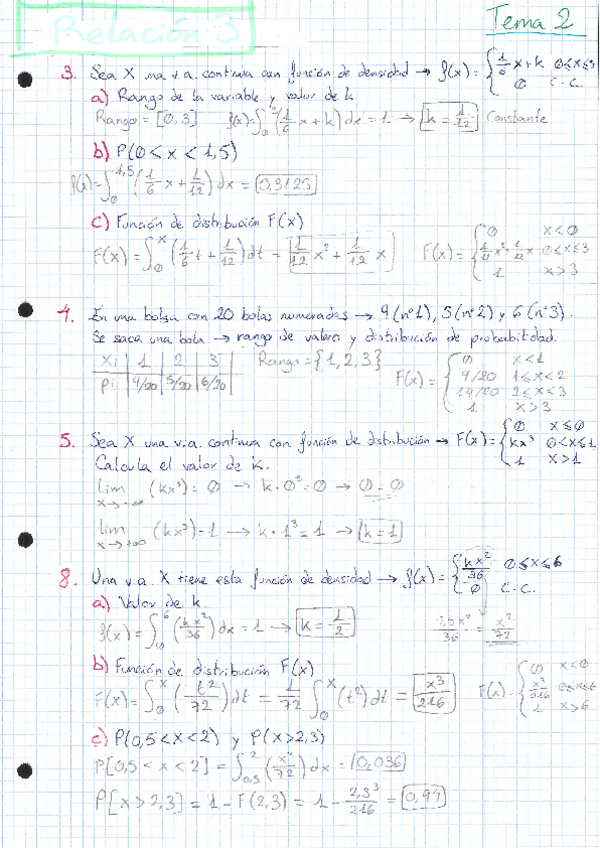 Relación 3
Tema 2
3. Sea X una v.a. continua con función de densidad → f(x) = { 1/6 x + k 0≤x≤3
0 c.c.
a) Rango de la variable y valor de k
Rango = [0,3] f(x) = ∫₀³ (1/6 x + k) dx = 1 → k = 1/12 Constante
b) P(0 < x < 1,5)
= ∫₀^1,5 (1/6 x + 1/12) dx = 0,3125
c) Función de distribución F(x)
F(x) = ∫₀^x (1/6 t + 1/12) dt = 1/12 x² + 1/12 x F(x) = { 0 x<0
1/12 x² + 1/12 x 0≤x≤3
1 x>3
4. En una bolsa con 20 bolas numeradas → 9 (nº1), 5 (nº2) y 6 (nº3).
Se saca una bola → rango de valores y distribución de probabilidad.
Xi | 1 | 2 | 3 | Rango = {1,2,3}
Pi | 9/20 | 5/20 | 6/20
F(x) = { 0 x<1
9/20 1≤x<2
14/20 2≤x<3
1 x>3
5. Sea X una v.a. continua con función de distribución → F(x) = { 0 x≤0
kx³ 0<x≤1
1 x>1
Calcula el valor de k.
lim x→-∞ (kx³) = 0 → k·0³ = 0 → 0 = 0
lim x→+∞ (kx³) = 1 → k·1³ = 1 → k = 1
8. Una v.a. X tiene esta función de densidad → f(x) = { kx²/36 0≤x≤6
0 c.c.
a) Valor de k
f(x) = ∫₀⁶ (kx²/36) dx = 1 → k = 1/2
x²/72
b) Función de distribución F(x)
F(x) = ∫₀^x (t²/72) dt = 1/72 ∫₀^x (t²) dt = x³/216 F(x) = { 0 x<0
x³/216 0≤x≤6
1 x>6
c) P(0,5<x<2) y P(x>2,3)
P[0,5<x<2] = ∫0,5² (x²/72) dx = 0,036
P[x>2,3] = 1 - F(2,3) = 1 - 2,3³/216 = 0,94